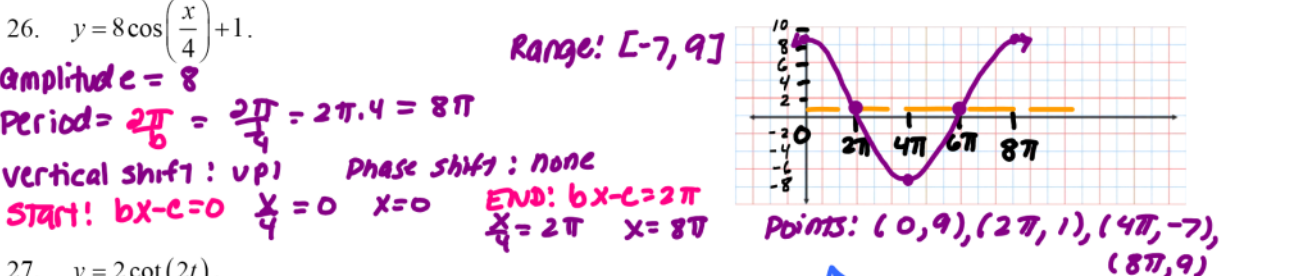 26. y = 8 cos(x/4) + 1.
Range: [-7, 9]
amplitude = 8
Period = 2π/b = 2π/(1/4) = 2π·4 = 8π
vertical shift: up 1 Phase shift: none
START: bx-c=0 x/4 = 0 x=0
END: bx-c=2π
x/4 = 2π x= 8π
10
8
6
4
2
0
-2
-4
-6
-8
2π 4π 6π 8π
Points: (0,9), (2π, 1), (4π, -7),
(8π, 9)
27. y = 2 cot(2t)